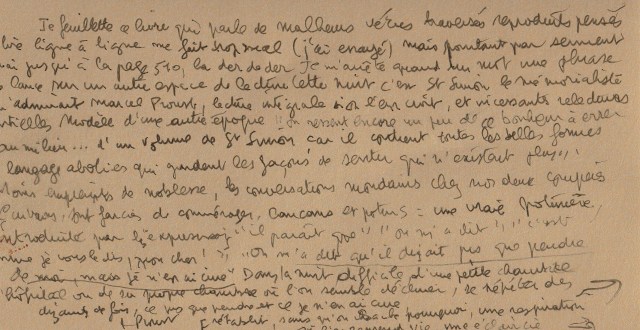 Je feuillette ce livre qui parle de malheurs vécus traversés reproduits pensés
lire ligne à ligne me fait trop mal (j'ai essayé) mais pourtant par serment
jusqu'à la page 510, la der de der. Je m'arrête quand un mot une phrase
lance sur un autre espace de lecture. Cette nuit c'est St Simon le mémorialiste
admirait Marcel Proust, lecture intégrale si on l'en croit, et incessantes relectures
modèle d'une autre époque "on ressent encore un peu de ce bonheur à errer
au milieu... d'un volume de St Simon car il contient toutes les belles formes
langage abolies qui gardent les façons de sentir qui n'existent plus",
empreints de noblesse, les conversations mondaines chez nos deux
sont farcies de commérages, cancans et potins = une vraie potinière
introduite par les expressions "il paraît que" "on m'a dit", "c'est
comme je vous le dis, mon cher!", "On m'a dit qu'il disait pis que pendre
de moi, mais je n'en ai cure" Dans la nuit difficile d'une petite chambre
d'hôpital ou de sa propre chambre où l'on semble décliner, se répéter des
fois, ce pis que pendre et ce je n'en ai cure
Proust s'établit, sans qu'on sache pourquoi, une respiration
vie, une